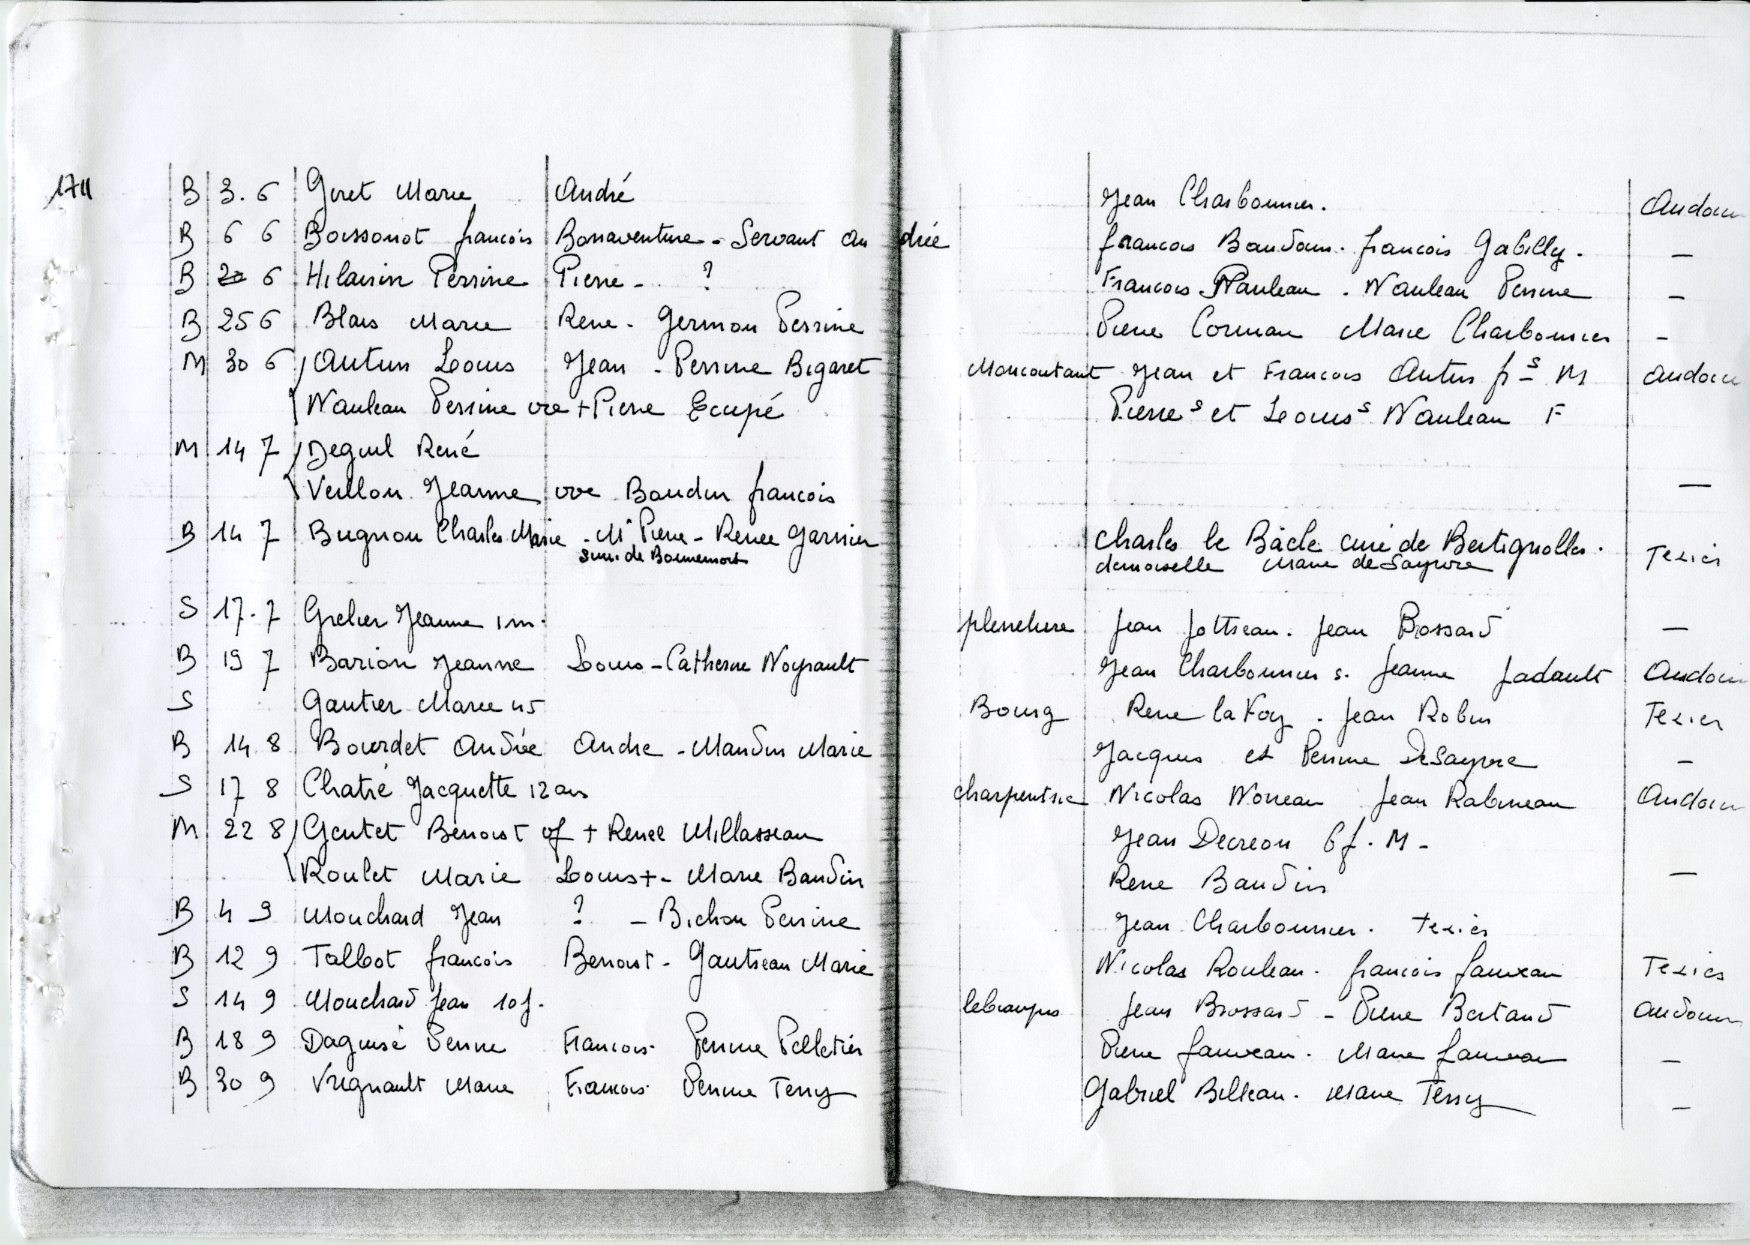 1711
B 3.6 Giret Marie André Jean Charbonnier. Audouin
B 6 6 Boissonot françois Bonaventure - Servant Andrée francois Baudouin. francois Gabilly. —
B 20 6 Hilairin Perrine Pierre - ? Francois Nauleau. Nauleau Perrine —
B 25 6 Blais Marie Rene - Germon Perrine Pierre Cornuau Marie Charbonnier -
M 30 6 Autun Louis Jean - Perrine Bigaret Moncoutant Jean et Francois Autun frs M Audouin
Nauleau Perrine vve + Pierre Ecupé Pierre s et Louis s Nauleau F
M 14 7 Deguil René
Veillon Jeanne vve Baudin francois —
B 14 7 Bugnon Charles Marie - Mr Pierre - Renee Garnier Charles le Bâcle curé de Bertignolles. Texier
Sieur de Bonnemort demoiselle Marie de Sayvre
S 17.7 Grelier Jeanne 1m. plenelure Jean Jottreau. Jean Brossard —
B 19 7 Barion Jeanne Louis - Catherine Noyrault Jean Charbonnier s. Jeanne Jadault Audouin
S Gautier Marie 45 Bourg Rene laFoy. Jean Robin Texier
B 14 8 Bourdet Andrée Andre - Maudin Marie Jacques et Perrine DeSayvre —
S 17 8 Chatré Jacquette 12 ans charpentrie Nicolas Noneau Jean Rabineau Audouin
M 22 8 Gentet Benoist vf + Renee Millasseau Jean Decreon bf. M -
Roulet Marie Louis + - Marie Baudin Rene Baudin —
B 4 9 Mouchard Jean ? - Bichon Perrine Jean Charbonnier. Texier
B 12 9 Talbot francois Benoist - Gautreau Marie Nicolas Rouleau. francois fauveau Texier
S 14 9 Mouchard Jean 10 j. lebeaupis Jean Brossard - Pierre Bertaud Audouin
B 18 9 Daguisé Perrine Francois - Perrine Pelletier Pierre fauveau. Marie fauveau —
B 30 9 Vrignault Marie Francois - Perrine Terry Gabriel Billeau. Marie Terry —